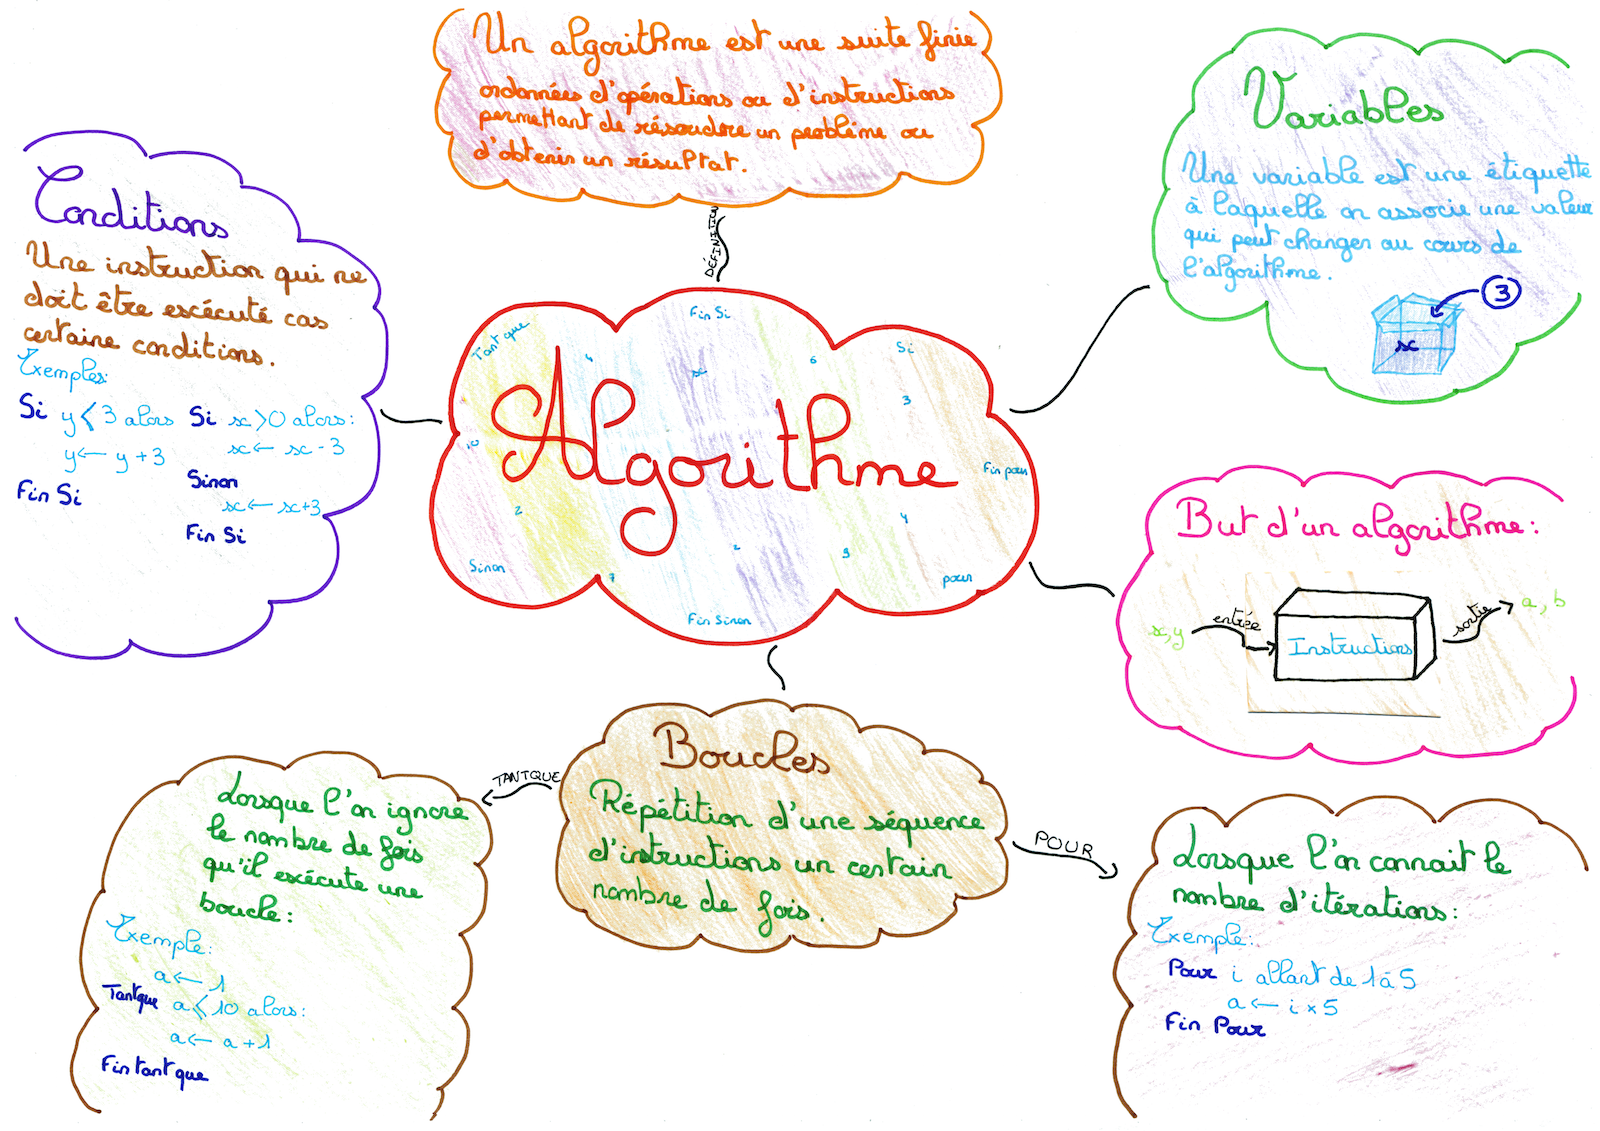 Un algorithme est une suite finie
ordonnées d'opérations ou d'instructions
permettant de résoudre un problème ou
d'obtenir un résultat.
DÉFINITION
Variables
Une variable est une étiquette
à laquelle on associe une valeur
qui peut changer au cours de
l'algorithme.
3
x
Conditions
Une instruction qui ne
doit être escécuté cas
certaine conditions.
Exemples:
Si y ⩽ 3 alors
y ← y + 3
Fin Si
Si x > 0 alors:
x ← x - 3
Sinon
x ← x + 3
Fin Si
Algorithme
Tant que
4
Fin Si
x
6
Si
3
10
Fin pour
2
4
Sinon
7
2
9
pour
Fin Sinon
But d'un algorithme:
x, y
entrée
Instructions
sortie
a, b
Boucles
Répétition d'une séquence
d'instructions un certain
nombre de fois.
TANTQUE
POUR
Lorsque l'on ignore
le nombre de fois
qu'il escécute une
boucle:
Exemple:
a ← 1
Tantque a ⩽ 10 alors:
a ← a + 1
Fin tant que
Lorsque l'on connait le
nombre d'itérations:
Exemple:
Pour i allant de 1 à 5
a ← i × 5
Fin Pour